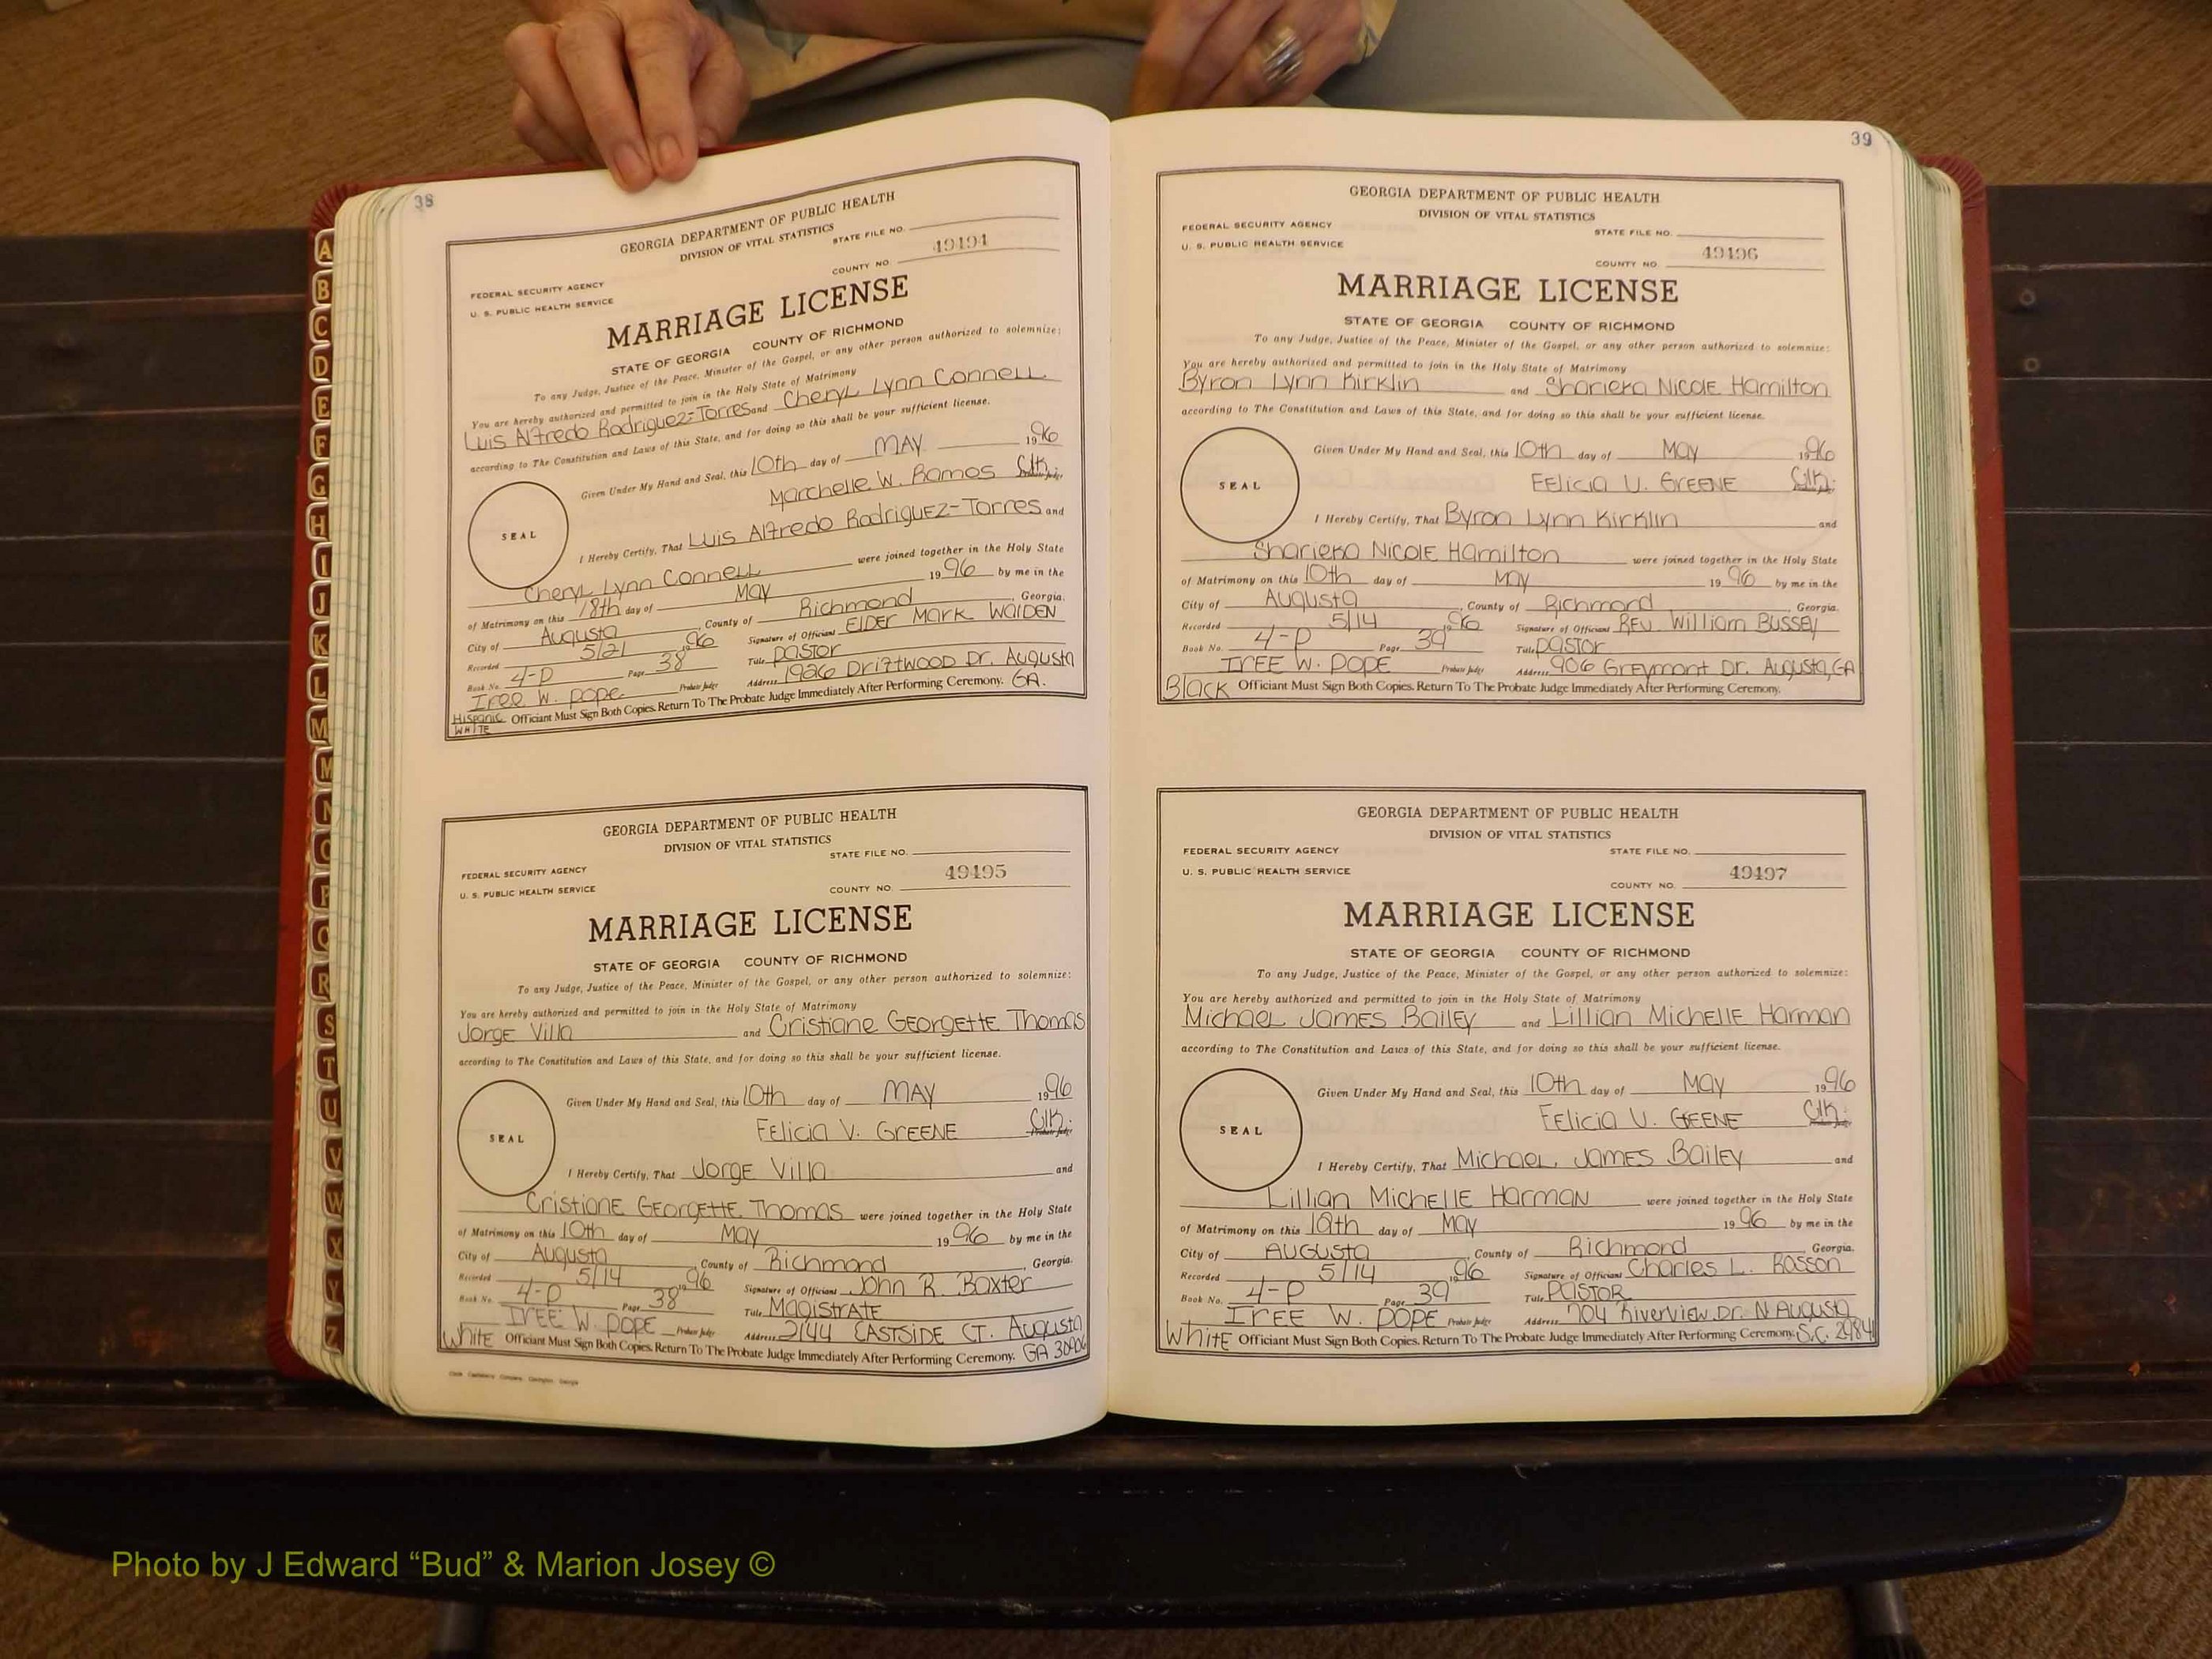 38
GEORGIA DEPARTMENT OF PUBLIC HEALTH
DIVISION OF VITAL STATISTICS
STATE FILE NO.
COUNTY NO. 49494
FEDERAL SECURITY AGENCY
U. S. PUBLIC HEALTH SERVICE
MARRIAGE LICENSE
STATE OF GEORGIA COUNTY OF RICHMOND
To any Judge, Justice of the Peace, Minister of the Gospel, or any other person authorized to solemnize:
You are hereby authorized and permitted to join in the Holy State of Matrimony
Luis Alfredo Rodriguez-Torres and Cheryl Lynn Connell
according to The Constitution and Laws of this State, and for doing so this shall be your sufficient license.
Given Under My Hand and Seal, this 10th day of MAY 1996
Marchelle W. Ramos Clk.
SEAL
I Hereby Certify, That Luis Alfredo Rodriguez-Torres and
Cheryl Lynn Connell were joined together in the Holy State
of Matrimony on this 18th day of May 1996 by me in the
City of Augusta, County of Richmond, Georgia.
Recorded 5/21 1996 Signature of Officiant Elder Mark Walden
Book No. 4-P Page 38 Title Pastor
Iree W. Pope Probate Judge Address 1926 Driftwood Dr. Augusta
Hispanic Officiant Must Sign Both Copies. Return To The Probate Judge Immediately After Performing Ceremony. GA.
WHITE
GEORGIA DEPARTMENT OF PUBLIC HEALTH
DIVISION OF VITAL STATISTICS
STATE FILE NO.
FEDERAL SECURITY AGENCY
COUNTY NO. 49495
U. S. PUBLIC HEALTH SERVICE
MARRIAGE LICENSE
STATE OF GEORGIA COUNTY OF RICHMOND
To any Judge, Justice of the Peace, Minister of the Gospel, or any other person authorized to solemnize:
You are hereby authorized and permitted to join in the Holy State of Matrimony
Jorge Villa and Cristiane Georgette Thomas
according to The Constitution and Laws of this State, and for doing so this shall be your sufficient license.
Given Under My Hand and Seal, this 10th day of MAY 1996
Felicia V. Greene Clk.
SEAL
I Hereby Certify, That Jorge Villa and
Cristiane Georgette Thomas were joined together in the Holy State
of Matrimony on this 10th day of May 1996 by me in the
City of Augusta, County of Richmond, Georgia.
Recorded 5/14 1996 Signature of Officiant John R. Baxter
Book No. 4-P Page 38 Title Magistrate
Iree W. Pope Probate Judge Address 2144 Eastside Ct. Augusta
White Officiant Must Sign Both Copies. Return To The Probate Judge Immediately After Performing Ceremony. GA 30906
39
GEORGIA DEPARTMENT OF PUBLIC HEALTH
DIVISION OF VITAL STATISTICS
FEDERAL SECURITY AGENCY
STATE FILE NO.
U. S. PUBLIC HEALTH SERVICE
COUNTY NO. 49496
MARRIAGE LICENSE
STATE OF GEORGIA COUNTY OF RICHMOND
To any Judge, Justice of the Peace, Minister of the Gospel, or any other person authorized to solemnize:
You are hereby authorized and permitted to join in the Holy State of Matrimony
Byron Lynn Kirklin and Sharieka Nicole Hamilton
according to The Constitution and Laws of this State, and for doing so this shall be your sufficient license.
Given Under My Hand and Seal, this 10th day of May 1996
Felicia V. Greene Clk.
SEAL
I Hereby Certify, That Byron Lynn Kirklin and
Sharieka Nicole Hamilton were joined together in the Holy State
of Matrimony on this 10th day of May 1996 by me in the
City of Augusta, County of Richmond, Georgia.
Recorded 5/14 1996 Signature of Officiant Rev. William Bussey
Book No. 4-P Page 39 Title Pastor
Iree W. Pope Probate Judge Address 906 Greymont Dr. Augusta, GA
Black Officiant Must Sign Both Copies. Return To The Probate Judge Immediately After Performing Ceremony.
GEORGIA DEPARTMENT OF PUBLIC HEALTH
DIVISION OF VITAL STATISTICS
FEDERAL SECURITY AGENCY
STATE FILE NO.
U. S. PUBLIC HEALTH SERVICE
COUNTY NO. 49497
MARRIAGE LICENSE
STATE OF GEORGIA COUNTY OF RICHMOND
To any Judge, Justice of the Peace, Minister of the Gospel, or any other person authorized to solemnize:
You are hereby authorized and permitted to join in the Holy State of Matrimony
Michael James Bailey and Lillian Michelle Harman
according to The Constitution and Laws of this State, and for doing so this shall be your sufficient license.
Given Under My Hand and Seal, this 10th day of May 1996
Felicia V. Greene Clk.
SEAL
I Hereby Certify, That Michael James Bailey and
Lillian Michelle Harman were joined together in the Holy State
of Matrimony on this day of May 1996 by me in the
City of Augusta, County of Richmond, Georgia.
Recorded 5/14 1996 Signature of Officiant Charles L.
Book No. 4-P Page 39 Title Pastor
Iree W. Pope Probate Judge Address 704 Riverview Dr. N Augusta
White Officiant Must Sign Both Copies. Return To The Probate Judge Immediately After Performing Ceremony. S.C.
A
B
C
D
E
F
G
H
I
J
K
L
M
N
O
P
Q
R
S
T
U
V
W
X
Y
Z
Photo by J Edward “Bud” & Marion Josey ©